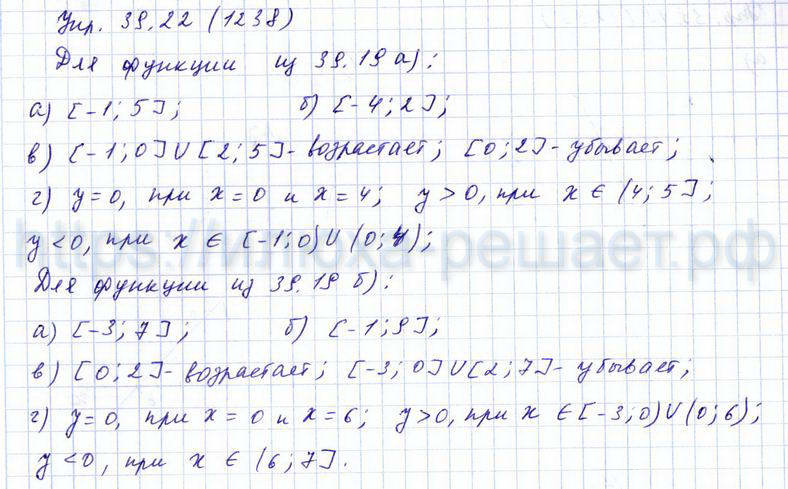 Упр. 39.22 (1238)
Для функции из 39.19 а):
а) [-1; 5]; б) [-4; 2];
в) [-1; 0] U [2; 5] - возрастает; [0; 2] - убывает;
г) y = 0, при x = 0 и x = 4; y > 0, при x ∈ (4; 5];
y < 0, при x ∈ [-1; 0) U (0; 4);
https://илюха-решает.рф
Для функции из 39.19 б):
а) [-3; 7]; б) [-1; 9];
в) [0; 2] - возрастает; [-3; 0] U [2; 7] - убывает;
г) y = 0, при x = 0 и x = 6; y > 0, при x ∈ [-3; 0) U (0; 6);
y < 0, при x ∈ (6; 7].